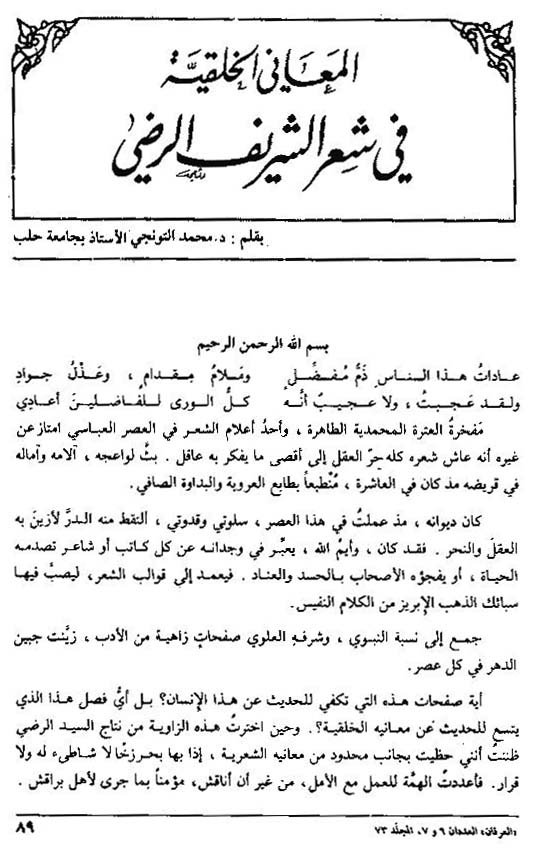 المعاني الخلقية
في شعر الشريف الرضي
بقلم : د. محمد التونجي الأستاذ بجامعة حلب
بسم الله الرحمن الرحيم
عاداتُ هذا الناس ذَمُّ مُفضَّلٍ وملامُ مِقدامٍ ، وعَذْلُ جوادِ
ولقد عجبتُ ، ولا عجيبٌ أنّه كلُّ الورى للفاضلين أعادي
مَفخرةُ العترة المحمدية الطاهرة ، وأحدُ أعلام الشعر في العصر العباسي امتاز عن
غيره أنه عاش شعره كله حرّ العقل إلى أقصى ما يفكر به عاقل . بثَّ لواعجه ، آلامه وآماله
في قريضه مذ كان في العاشرة ، مُنْطبعاً بطابع العروبة والبداوة الصافي .
كان ديوانه ، مذ عملتُ في هذا العصر ، سلوتي وقدوتي ، ألتقط منه الدرَّ لأزين به
العقلَ والنحر . فقد كان ، وأيمُ الله ، يعبِّر في وجدانه عن كل كاتب أو شاعر تصدمه
الحياة ، أو يفجؤه الأصحاب بالحسد والعناد . فيعمد إلي قوالب الشعر، ليصبَّ فيها
سبائك الذهب الإبريز من الكلام النفيس .
جمع إلى نسبة النبوي ، وشرفهِ العلوي صفحاتٍ زاهية من الأدب ، زيَّنت جبين
الدهر في كل عصر .
أية صفحات هذه التي تكفي للحديث عن هذا الإنسان؟ بل أيُّ فصل هذا الذي
يتسع للحديث عن معانيه الخلقية؟. وحين اخترتُ هذه الزاوية من نتاج السيد الرضي
ظننتُ أنني حظيت بجانب محدود من معانيه الشعرية ، إذا بها بحرزخّا لا شاطىء له ولا
قرار. فأعددتُ الهمّة للعمل مع الأمل، من غير أن أناقش، مؤمناً بما جرى لأهل براقش .
«العرفان» العددان ٦ و ٧، المجلد ٧٣
٨٩